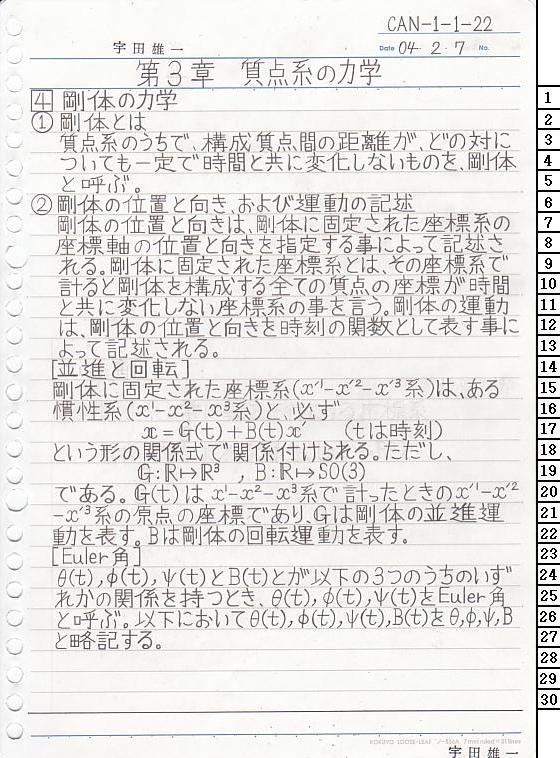 CAN-1-1-22
宇田雄一
Date 04・2・7 No.
第3章 質点系の力学
4 剛体の力学
① 剛体とは
質点系のうちで、構成質点間の距離が、どの対に
ついても一定で時間と共に変化しないものを、剛体
と呼ぶ。
② 剛体の位置と向き、および運動の記述
剛体の位置と向きは、剛体に固定された座標系の
座標軸の位置と向きを指定する事によって記述さ
れる。剛体に固定された座標系とは、その座標系で
計ると剛体を構成する全ての質点の座標が時間
と共に変化しない座標系の事を言う。剛体の運動
は、剛体の位置と向きを時刻の関数として表す事に
よって記述される。
[並進と回転]
剛体に固定された座標系(x'¹-x'²-x'³系)は、ある
慣性系(x¹-x²-x³系)と、必ず
x=G(t)+B(t)x' (tは時刻)
という形の関係式で関係付けられる。ただし、
G:ℝ↦ℝ³ , B:ℝ↦SO(3)
である。G(t)はx¹-x²-x³系で計ったときのx'¹-x'²
-x'³系の原点の座標であり、Gは剛体の並進運
動を表す。Bは剛体の回転運動を表す。
[Euler角]
θ(t),φ(t),ψ(t)とB(t)とが以下の3つのうちのいず
れかの関係を持つとき、θ(t),φ(t),ψ(t)をEuler角
と呼ぶ。以下においてθ(t),φ(t),ψ(t),B(t)をθ,φ,ψ,B
と略記する。
1
2
3
4
5
6
7
8
9
10
11
12
13
14
15
16
17
18
19
20
21
22
23
24
25
26
27
28
29
30
KOKUYO LOOSE-LEAF ノ-836A 7 mm ruled × 31 lines
宇田雄一